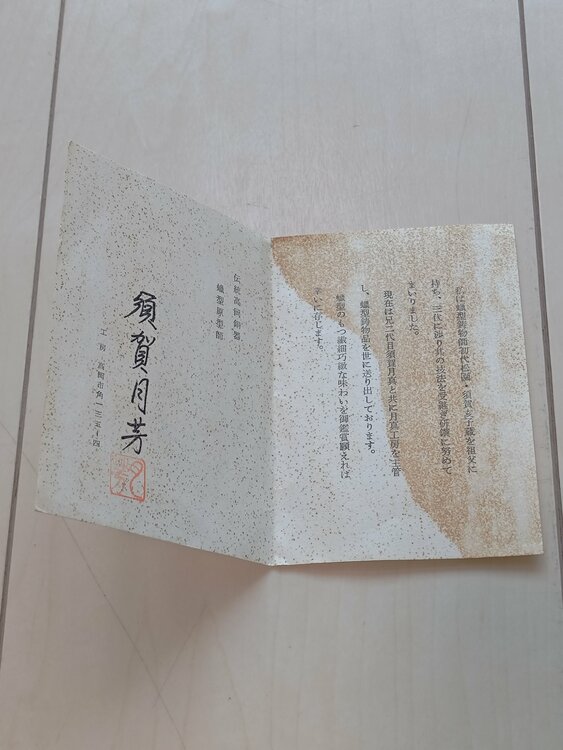 私は蠟型鋳物師初代松園・須賀玄子蔵を祖父に
持ち、三代に辿り其の技法を受継ぎ研鑽に努めて
まいりました。
現在は兄二代目須賀月真と共に月真工房を主管
し、蠟型鋳物品を世に送り出しております。
蠟型のもつ繊細巧緻な味わいを御鑑賞願えれば
幸いに存じます。
伝統高岡銅器
蠟型原型師
須賀月芳
工房 高岡市角一三五ノ四